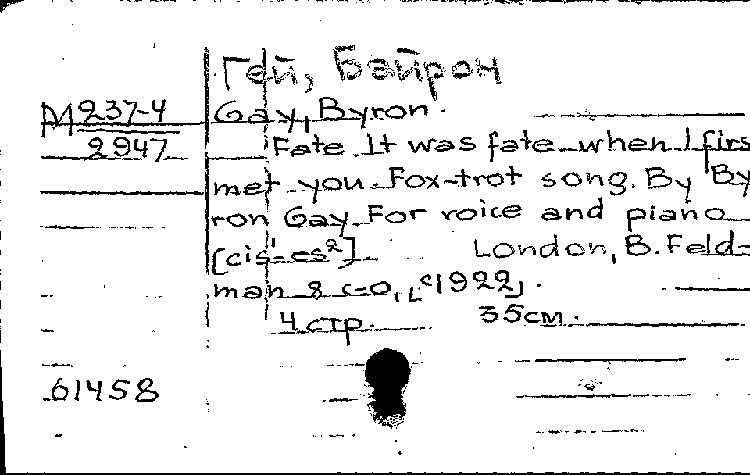 Гей, Байрон
М 237-4
2947
Gay, Byron.
Fate. It was fate when I firs
met you. Fox-trot song. By By
ron Gay. For voice and piano
[cis¹-es²] London, B. Feld-
man & co, [c1922].
4 стр. 35см.
61458